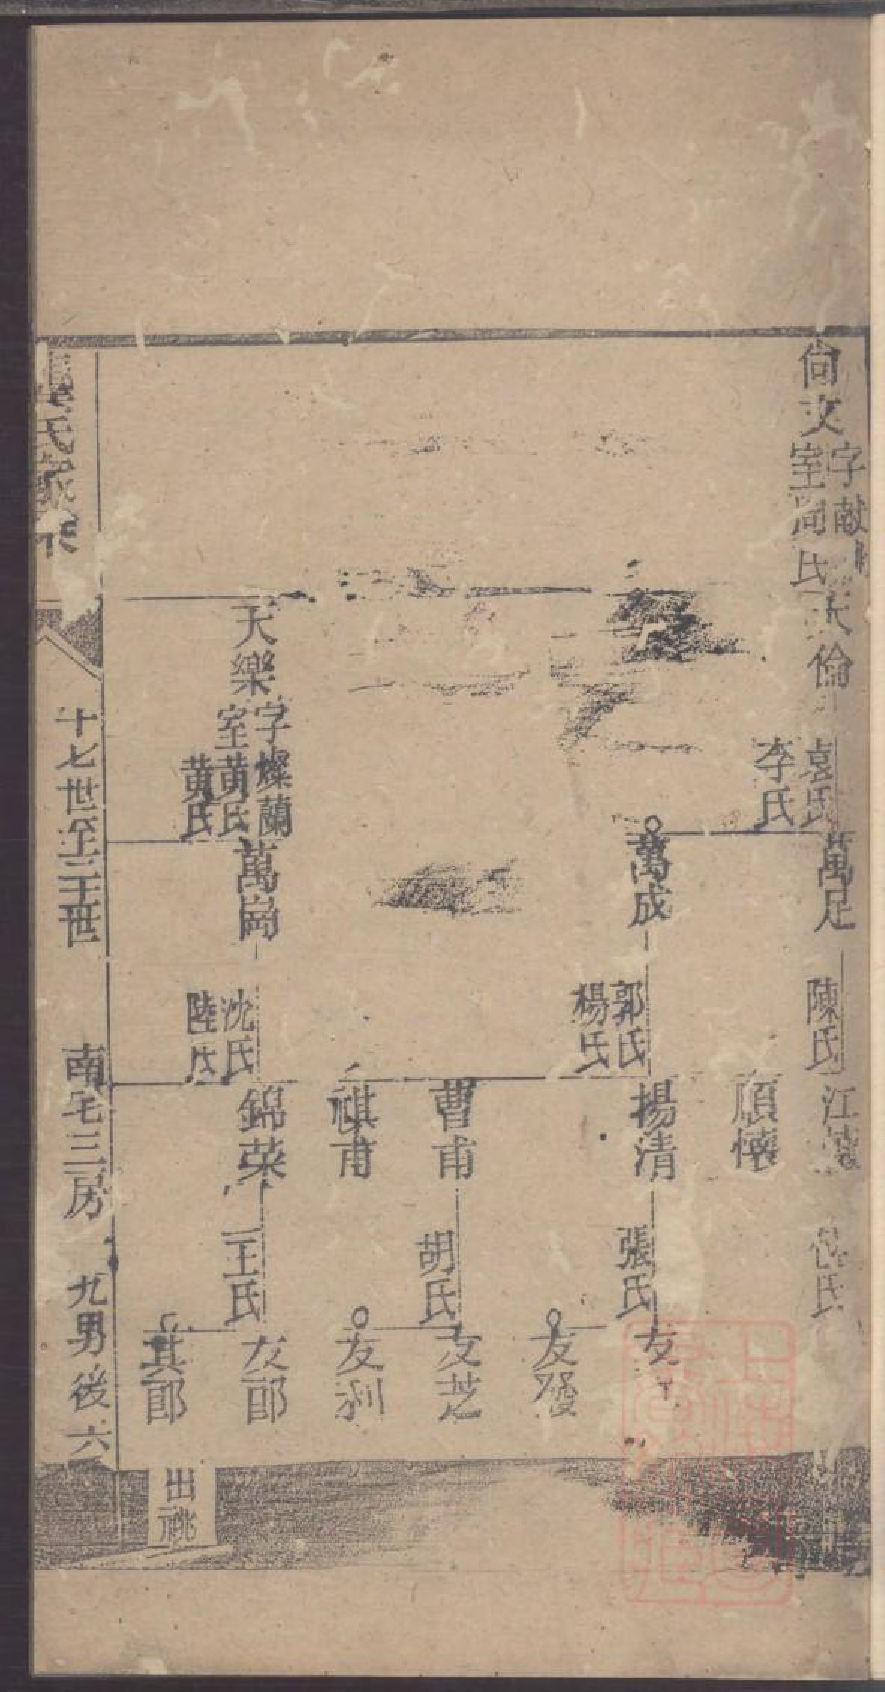 尙文
字献
室周氏
天倫
袁氏
李氏
萬足
陳氏
江
順懷
萬成
郭氏
楊氏
揚清
張氏
友
友發
曹甫
胡氏
友芝
友利
祺甫
天樂
字燦蘭
室黄氏
黄氏
萬崗
沈氏
陸氏
錦荣
王氏
友郎
其郎
出祧
氏家乘
十七世至二十一世
南宅三房
九男後六